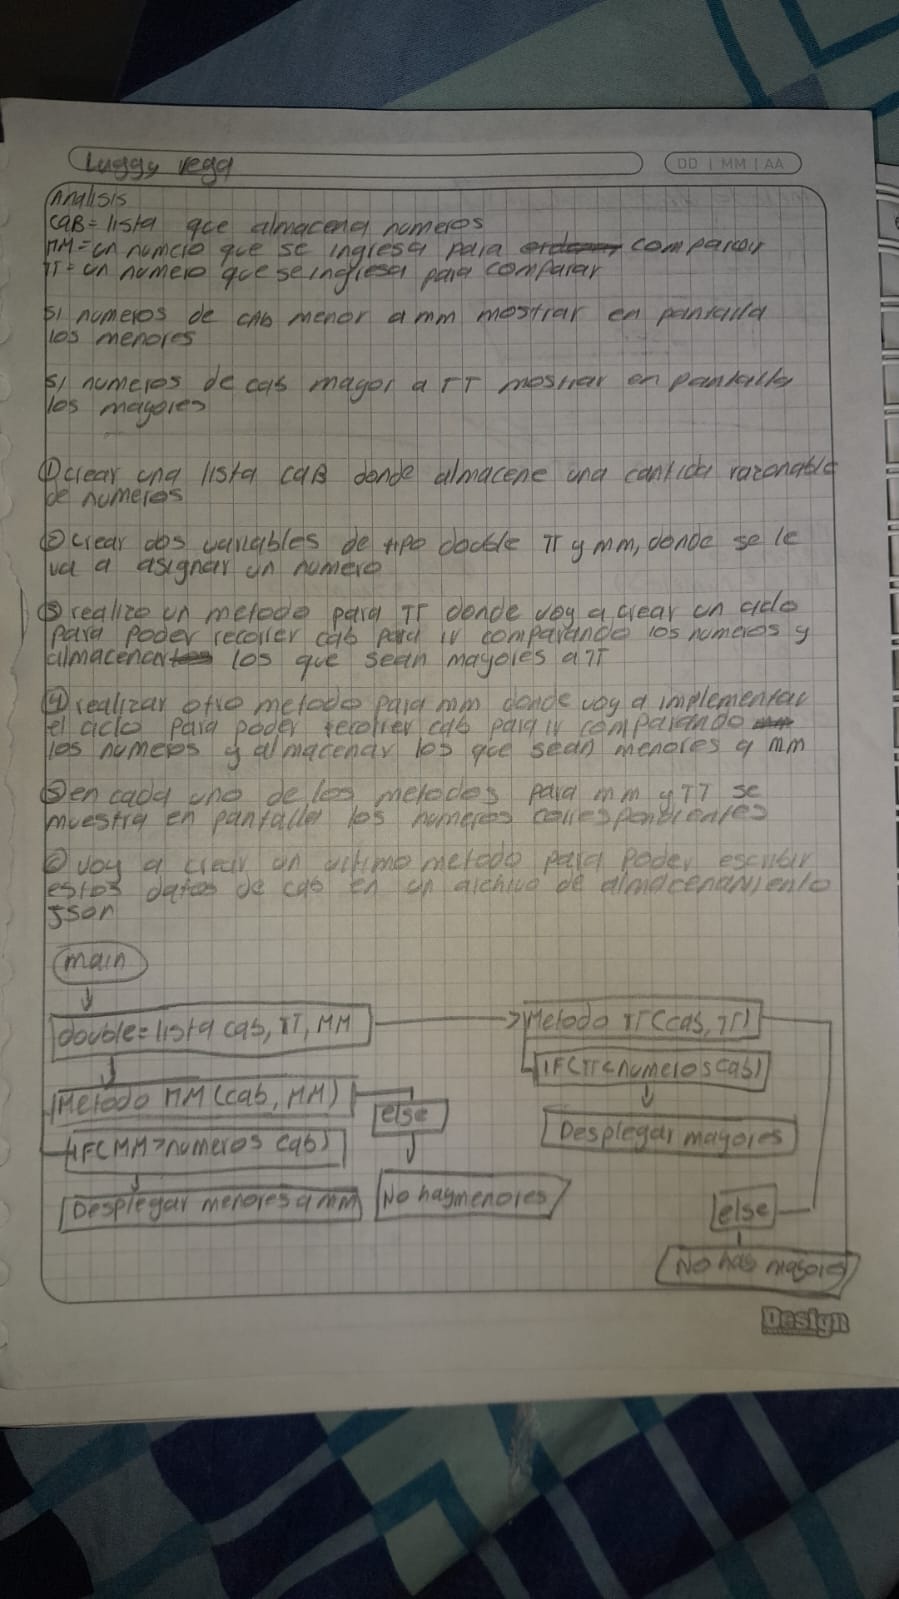 Luggy vega
DD | MM | AA
Analisis
CAB = lista que almacena numeros
MM = un numero que se ingresa para comparar
TT = un numero que se ingresa para comparar
si numeros de cab menor a mm mostrar en pantalla
los menores
si numeros de cab mayor a TT mostrar en pantalla
los mayores
① crear una lista caB donde almacene una cantida razonable
de numeros
② crear dos variables de tipo double TT y mm, donde se le
va a asignar un numero
③ realizo un metodo para TT donde voy a crear un ciclo
para poder recorrer cab para ir comparando los numeros y
almacenar los que sean mayores a TT
④ realizar otro metodo para mm donde voy a implementar
el ciclo para poder recorrer cab para ir comparando
los numeros y almacenar los que sean menores a mm
⑤ en cada uno de los metodos para mm y TT se
muestra en pantalla los numeros correspondientes
⑥ voy a crear un ultimo metodo para poder escribir
estos datos de cab en un archivo de almacenamiento
json
main
double = lista cab, TT, MM
Metodo TT (cab, TT)
IF(TT < numeros cab)
Desplegar mayores
Metodo MM (cab, MM)
else
IF(MM > numeros cab)
Desplegar menores a mm
No hay menores
else
No hay mayores
Design